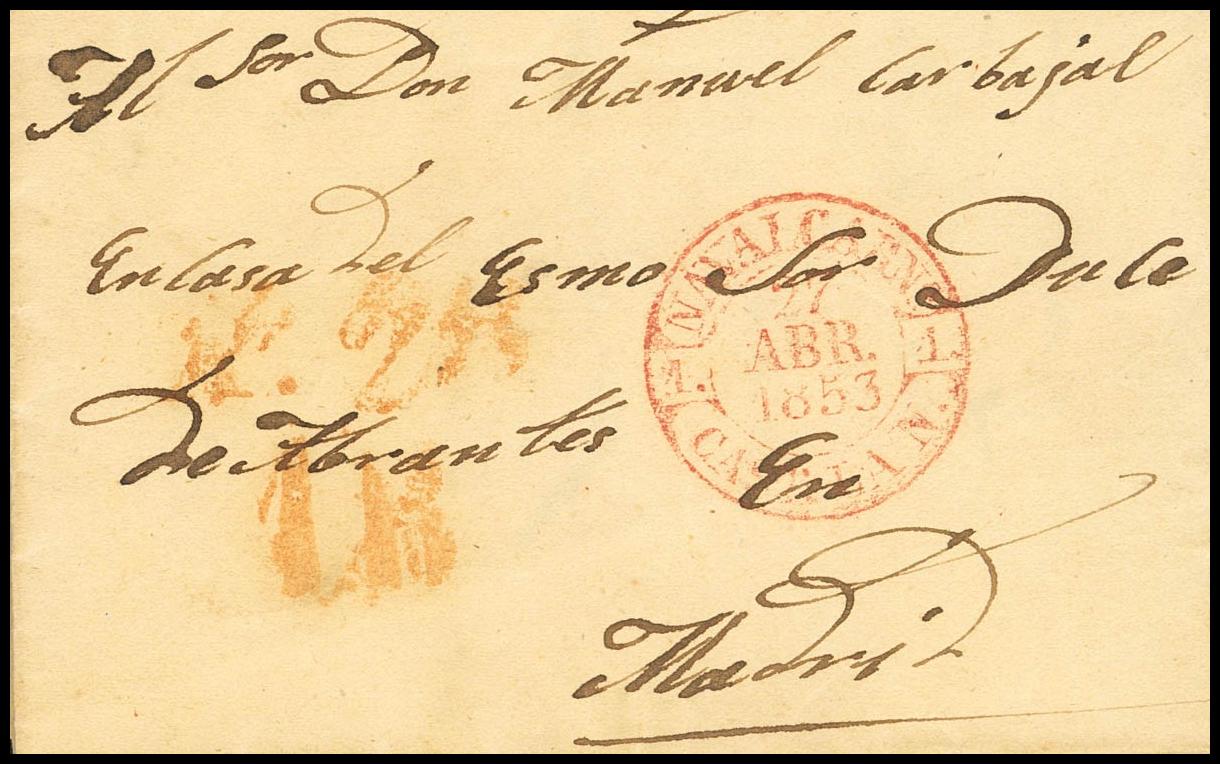 Al Sor Don Manuel Carbajal
En Casa del Esmo Sor Duce
de Abrantes En
Madrid
NAVALCARNE
27
ABR.
1853
1. 1.